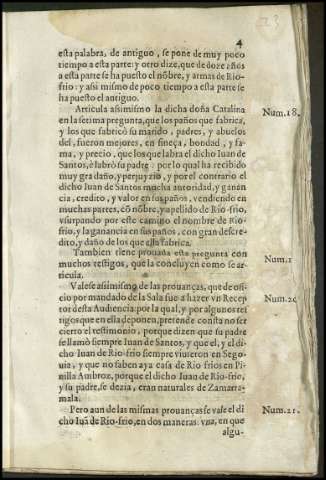 23
4
esta palabra, de antiguo, se pone de muy poco
tiempo a esta parte: y otro dize, que de doze años
a esta parte se ha puesto el nõbre, y armas de Rio-
frio: y assi mismo de poco tiempo a esta parte se
ha puesto el antiguo.
Articula assimismo la dicha doña Catalina
Num. 18.
en la setima pregunta, que los paños que fabrica,
y los que fabricò su marido, padres, y abuelos
del, fueron mejores, en fineça, bondad, y fa-
ma, y precio, que los que labra el dicho Iuan de
Santos, ò labrò su padre: por lo qual ha recibido
muy gra daño, y perjuyzio, y por el contrario el
dicho Iuan de Santos mucha autoridad, y ganan
cia, credito, y valor en sus paños, vendiendo en
muchas partes, cõ nõbre, y apellido de Rio-frio,
vsurpando por este camino el nombre de Rio-
frio, y la ganancia en sus paños, con gran descre-
dito, y daño de los que ella fabrica.
Tambien tiene prouada esta pregunta con
Num. 1
muchos testigos, que la concluyen como se ar-
ticula.
Valese assimismo de las prouanças, que de ofi-
cio por mandado de la Sala fue a hazer vn Recep
Num. 20
tor desta Audiencia: por la qual, y por algunos tes
tigos que en ella deponen, pretende consta no ser
cierto el testimonio, porque dizen que su padre
se llamò siempre Iuan de Santos, y que el, y el di-
cho Iuan de Rio-frio siempre viuieron en Sego-
uia, y que no saben aya casa de Rio frios en Pi-
nilla Ambroz, porque el dicho Iuan de Rio-frio,
y su padre, se dezia, eran naturales de Zamarra-
mala.
Pero aun de las mismas prouanças se vale el di
Num. 21.
cho Iuã de Rio-frio, en dos maneras: vna, en que
algu-